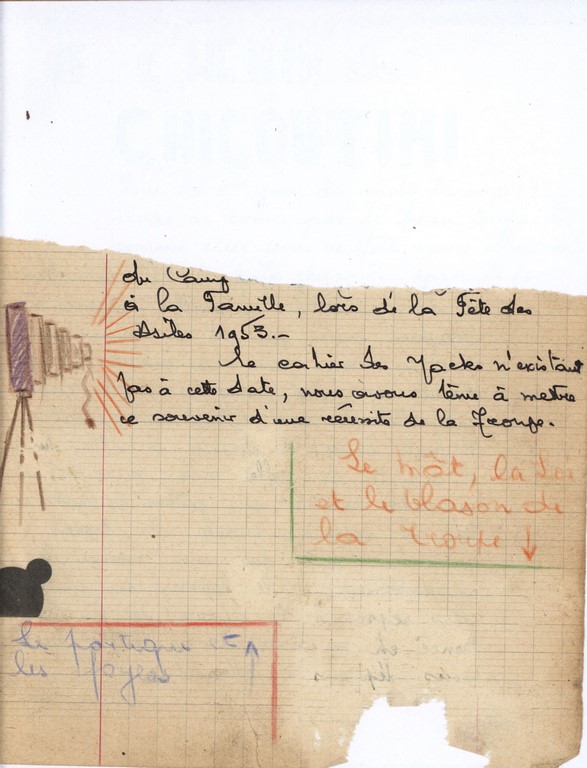 du Camp
à la Famille, lors de la Fête des
Asiles 1953.-
Le cahier des Jacks n'existant
pas à cette date, nous avons tenu à mettre
ce souvenir d'une réussite de la Troupe.
Le mât, la Loi
et le blason de
la Troupe ↓
Le portique et ↑
les foyers